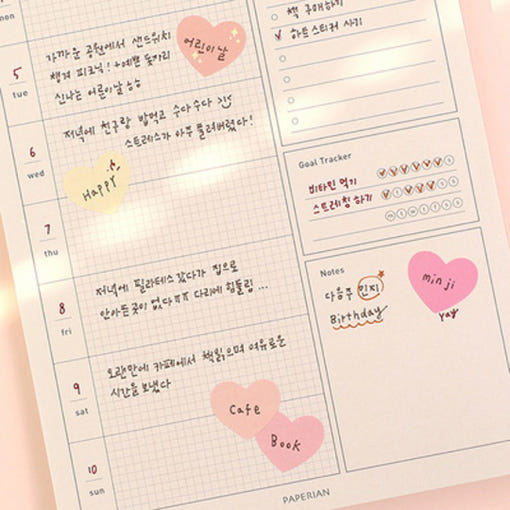 mon
5
tue
가까운 공원에서 샌드위치
챙겨 피크닉! +예쁜 돗자리
신나는 어린이날 슝슝
어린이날
6
wed
저녁에 친구랑 밥먹고 수다수다
스트레스가 아주 풀려버렸다!
Happy
7
thu
8
fri
저녁에 필라테스 갔다가 집으로
안아픈곳이 없다ㅠㅠ 다리에 힘들림...
9
sat
오랜만에 카페에서 책읽으며 여유로운
시간을 보냈다
Cafe
Book
10
sun
책 구매하기
하트스티커 사기
Goal Tracker
비타민 먹기
스트레칭 하기
m t w t f s s
Notes
다음주 민지
Birthday
minji
yay
PAPERIAN